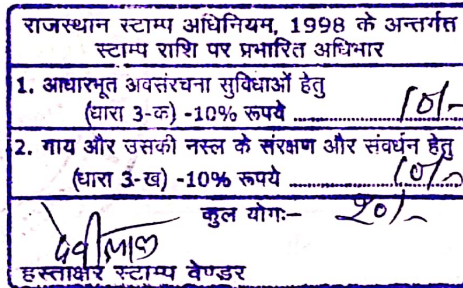 राजस्थान स्टाम्प अधिनियम, 1998 के अन्तर्गत
स्टाम्प राशि पर प्रभारित अधिभार
1. आधारभूत अवसंरचना सुविधाओं हेतु
(धारा 3-क) -10% रूपये .................. 10/-
2. गाय और उसकी नस्ल के संरक्षण और संवर्धन हेतु
(धारा 3-ख) -10% रूपये .................. 10/-
कुल योगः- 20/-
देवीलाल
हस्ताक्षर स्टाम्प वेण्डर